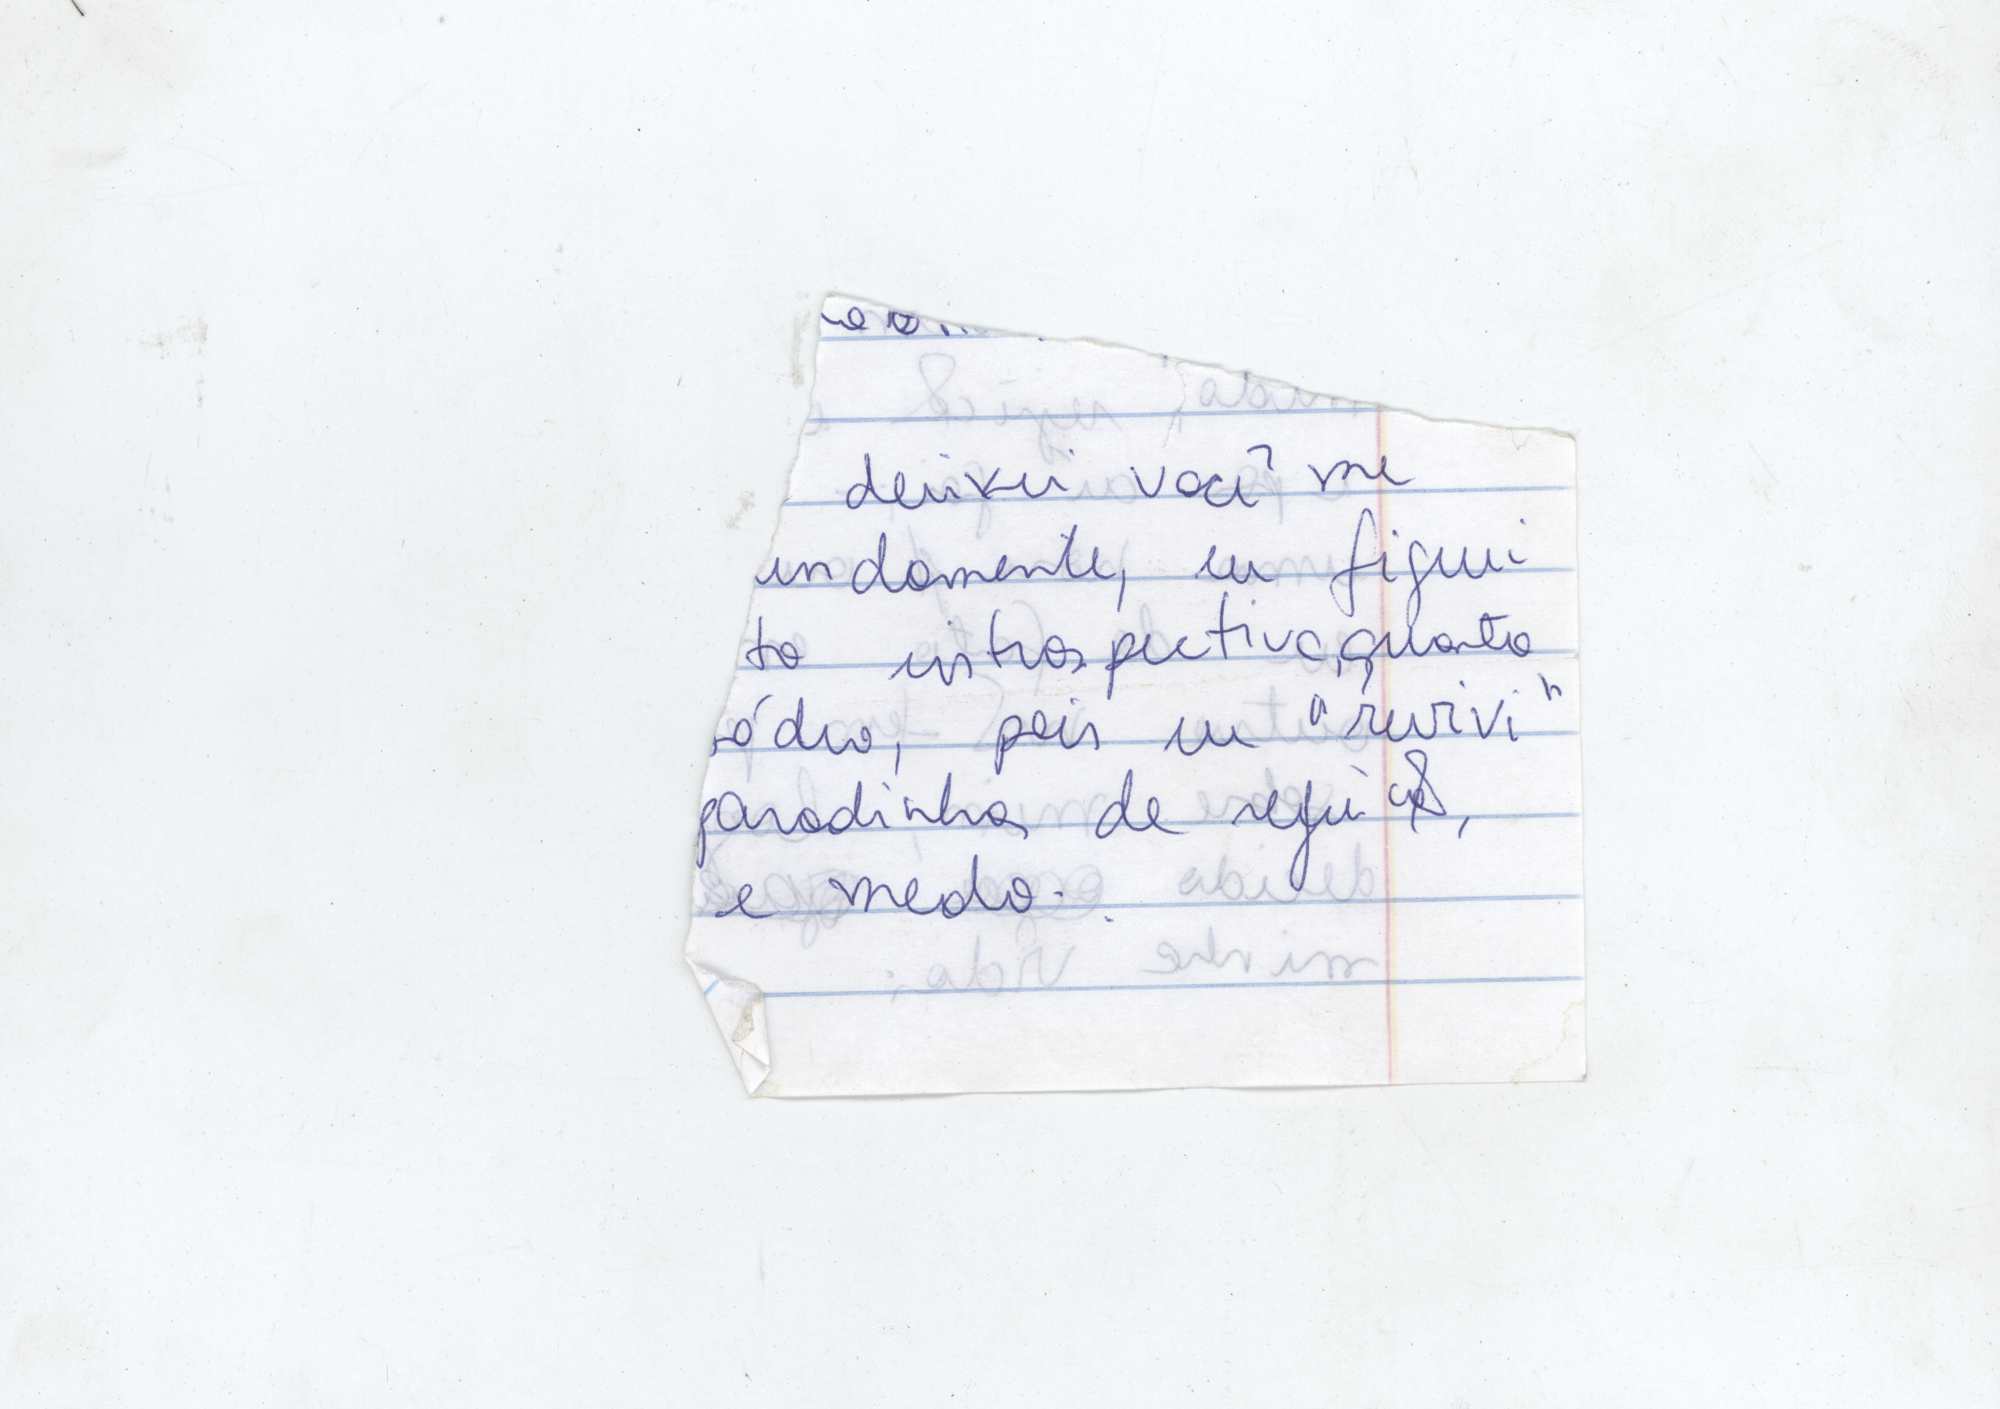 deixei você me
undamente, eu fiquei
to introspectiva, quanto
ródio, pois eu "revivi"
paradinhas de rejeição,
e medo.